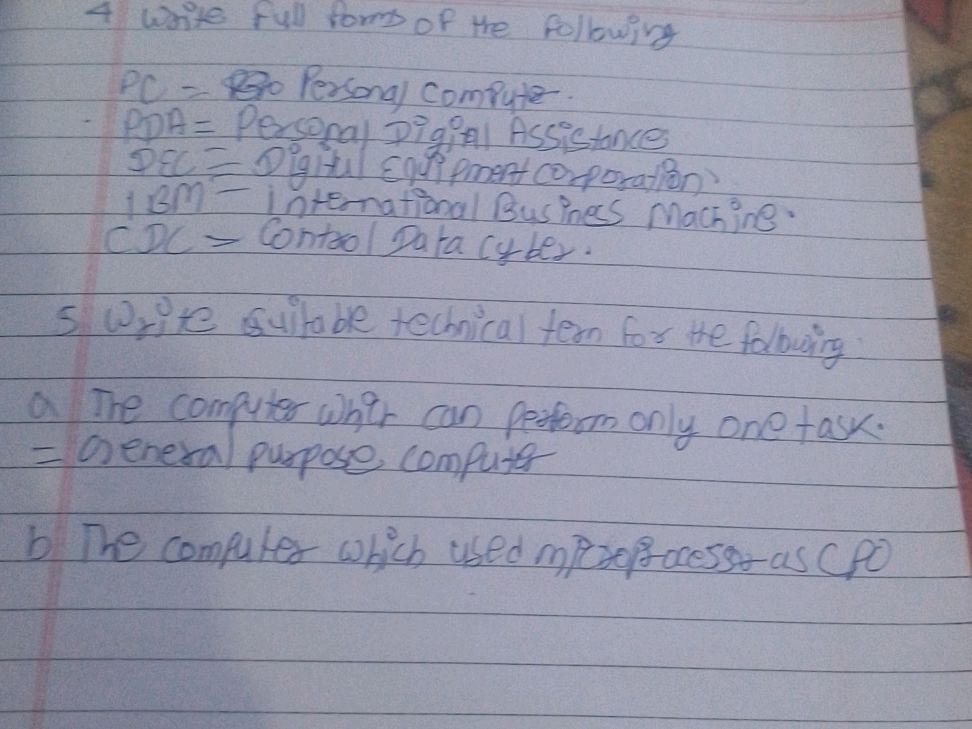 4 Write Full forms of the following
PC = Personal Computer.
PDA = Personal Digital Assistance
DEC = Digital Equipment corporation.
IBM = International Business Machine.
CDC = Control Data Cyber.
5 Write suitable technical term for the following.
a The computer which can perform only one task.
= General purpose computer
b The computer which used microprocessor as CPU